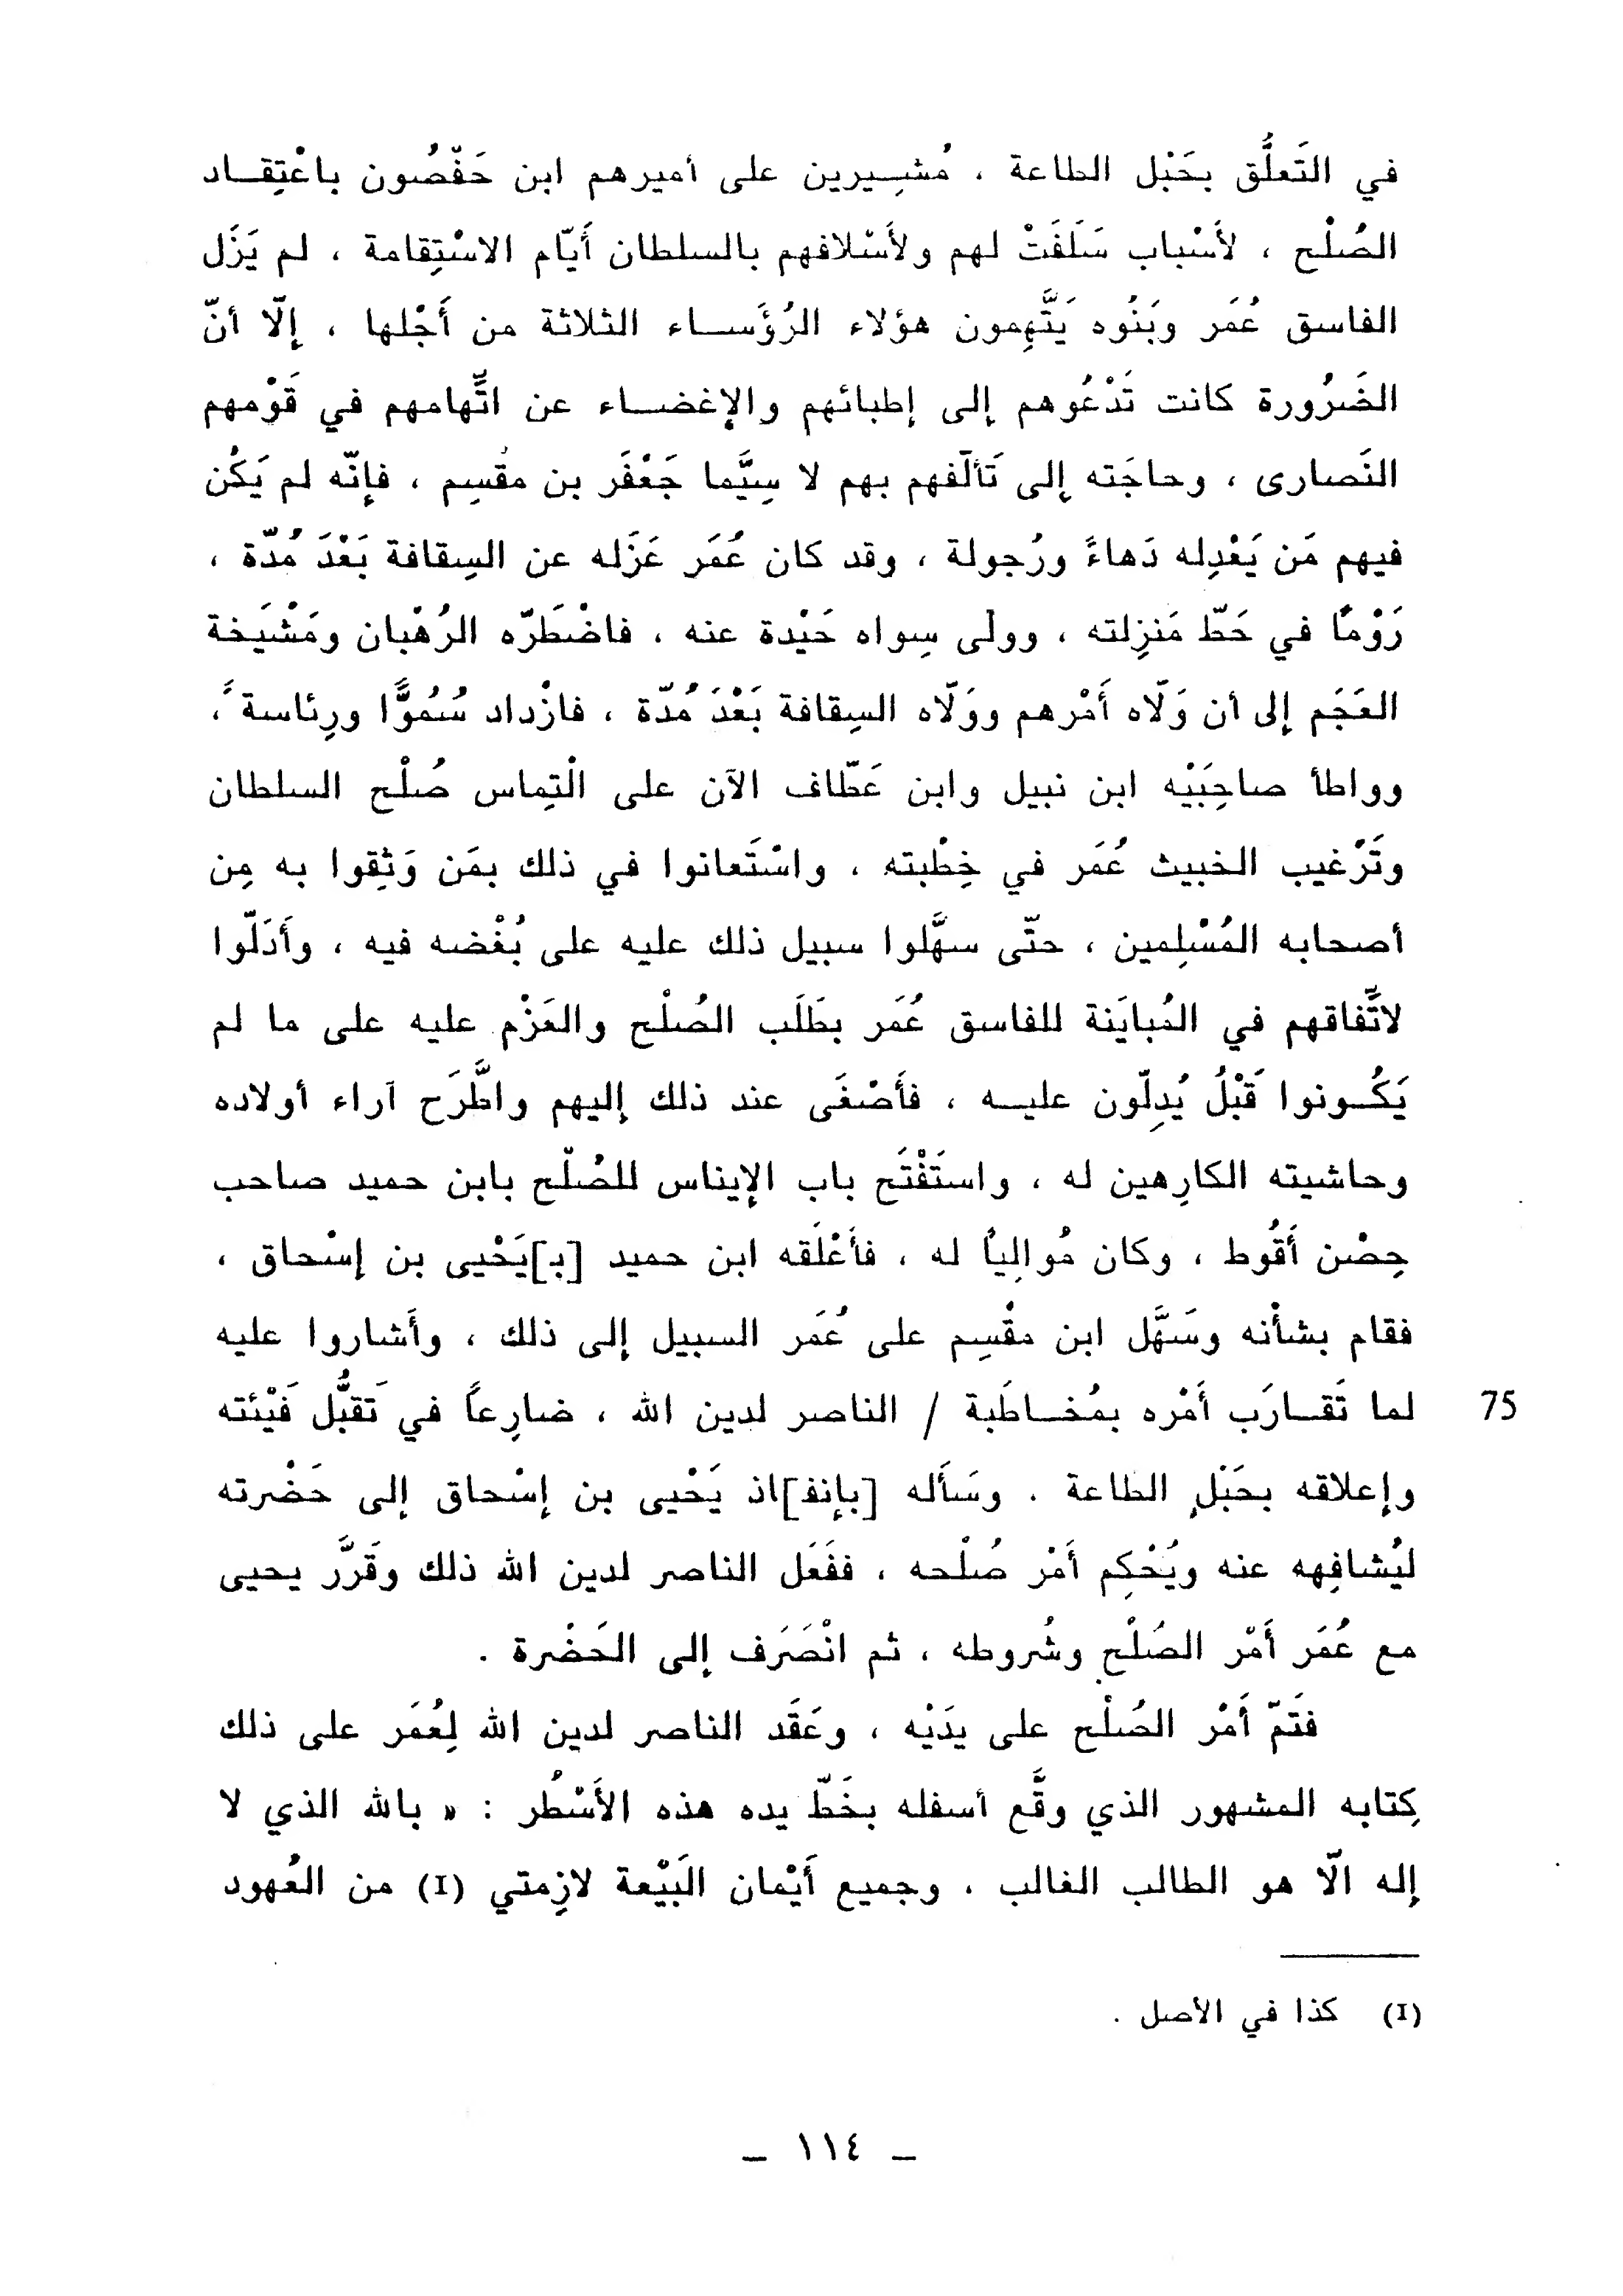 في التَعلُّق بحَبْل الطاعة ، مُشيرين على أميرهم ابن حَفْصُون باعْتِقاد
الصُلْح ، لأسْباب سَلَفَتْ لهم ولأسْلافهم بالسلطان أَيّام الاسْتِقامة ، لم يَزَل
الفاسق عُمَر وبَنُوه يَتَّهِمون هؤلاء الرُؤَساء الثلاثة من أَجْلها ، إلّا أنّ
الضَرُورة كانت تَدْعُوهم إلى إطبائهم والإغضاء عن اتِّهامهم في قَوْمهم
النَصارى ، وحاجَته إلى تَألّفهم بهم لا سِيَّما جَعْفَر بن مقْسِم ، فإنّه لم يَكُن
فيهم مَن يَعْدِله دَهاءً ورُجولة ، وقد كان عُمَر عَزَله عن السِقافة بَعْدَ مُدّة ،
رَوْمًا في حَطّ مَنزِلته ، وولّى سِواه حَيْدة عنه ، فاضْطَرّه الرُهْبان ومَشْيَخة
العَجَم إلى أن وَلّاه أَمْرهم ووَلّاه السِقافة بَعْدَ مُدّة ، فازْداد سُمُوًّا ورِئاسةً ،
وواطأ صاحِبَيْه ابن نبيل وابن عَطّاف الآن على الْتِماس صُلْح السلطان
وتَرْغيب الخبيث عُمَر في خِطْبته ، واسْتَعانوا في ذلك بمَن وَثِقوا به مِن
أصحابه المُسْلِمين ، حتّى سهَّلوا سبيل ذلك عليه على بُغْضه فيه ، وأَدَلّوا
لاتِّفاقهم في المُبايَنة للفاسق عُمَر بطَلَب الصُلْح والعَزْم عليه على ما لم
يَكُونوا قَبْلُ يُدِلّون عليه ، فأَصْغَى عند ذلك إليهم واطَّرَح آراء أولاده
وحاشيته الكارِهين له ، واستَفْتَح باب الإيناس للصُلْح بابن حميد صاحب
حِصْن أَقُوط ، وكان مُوالِياً له ، فأَعْلَقه ابن حميد [بـ]يَحْيى بن إسْحاق ،
فقام بشأْنه وسَهَّل ابن مقْسِم على عُمَر السبيل إلى ذلك ، وأَشاروا عليه
لما تَقارَب أَمْره بمُخاطَبة / الناصر لدين الله ، ضارِعاً في تَقبُّل فَيْئته 75
وإعلاقه بحَبْلِ الطاعة . وسَأَله [بإنفـ]اذ يَحْيى بن إسْحاق إلى حَضْرته
ليُشافِهه عنه ويُحْكِم أَمْر صُلْحه ، ففَعَل الناصر لدين الله ذلك وقَرَّر يحيى
مع عُمَر أَمْر الصُلْحِ وشُروطه ، ثم انْصَرَف إلى الحَضْرة .
فَتَمّ أَمْر الصُلْح على يدَيْه ، وعَقَد الناصر لدين الله لِعُمَر على ذلك
كِتابه المشهور الذي وقَّع أسفله بخَطّ يده هذه الأَسْطُر : « بالله الذي لا
إله الّا هو الطالب الغالب ، وجميع أَيْمان البَيْعة لازِمتي (I) من العُهود
(I) كذا في الأصل .
– ١١٤ –